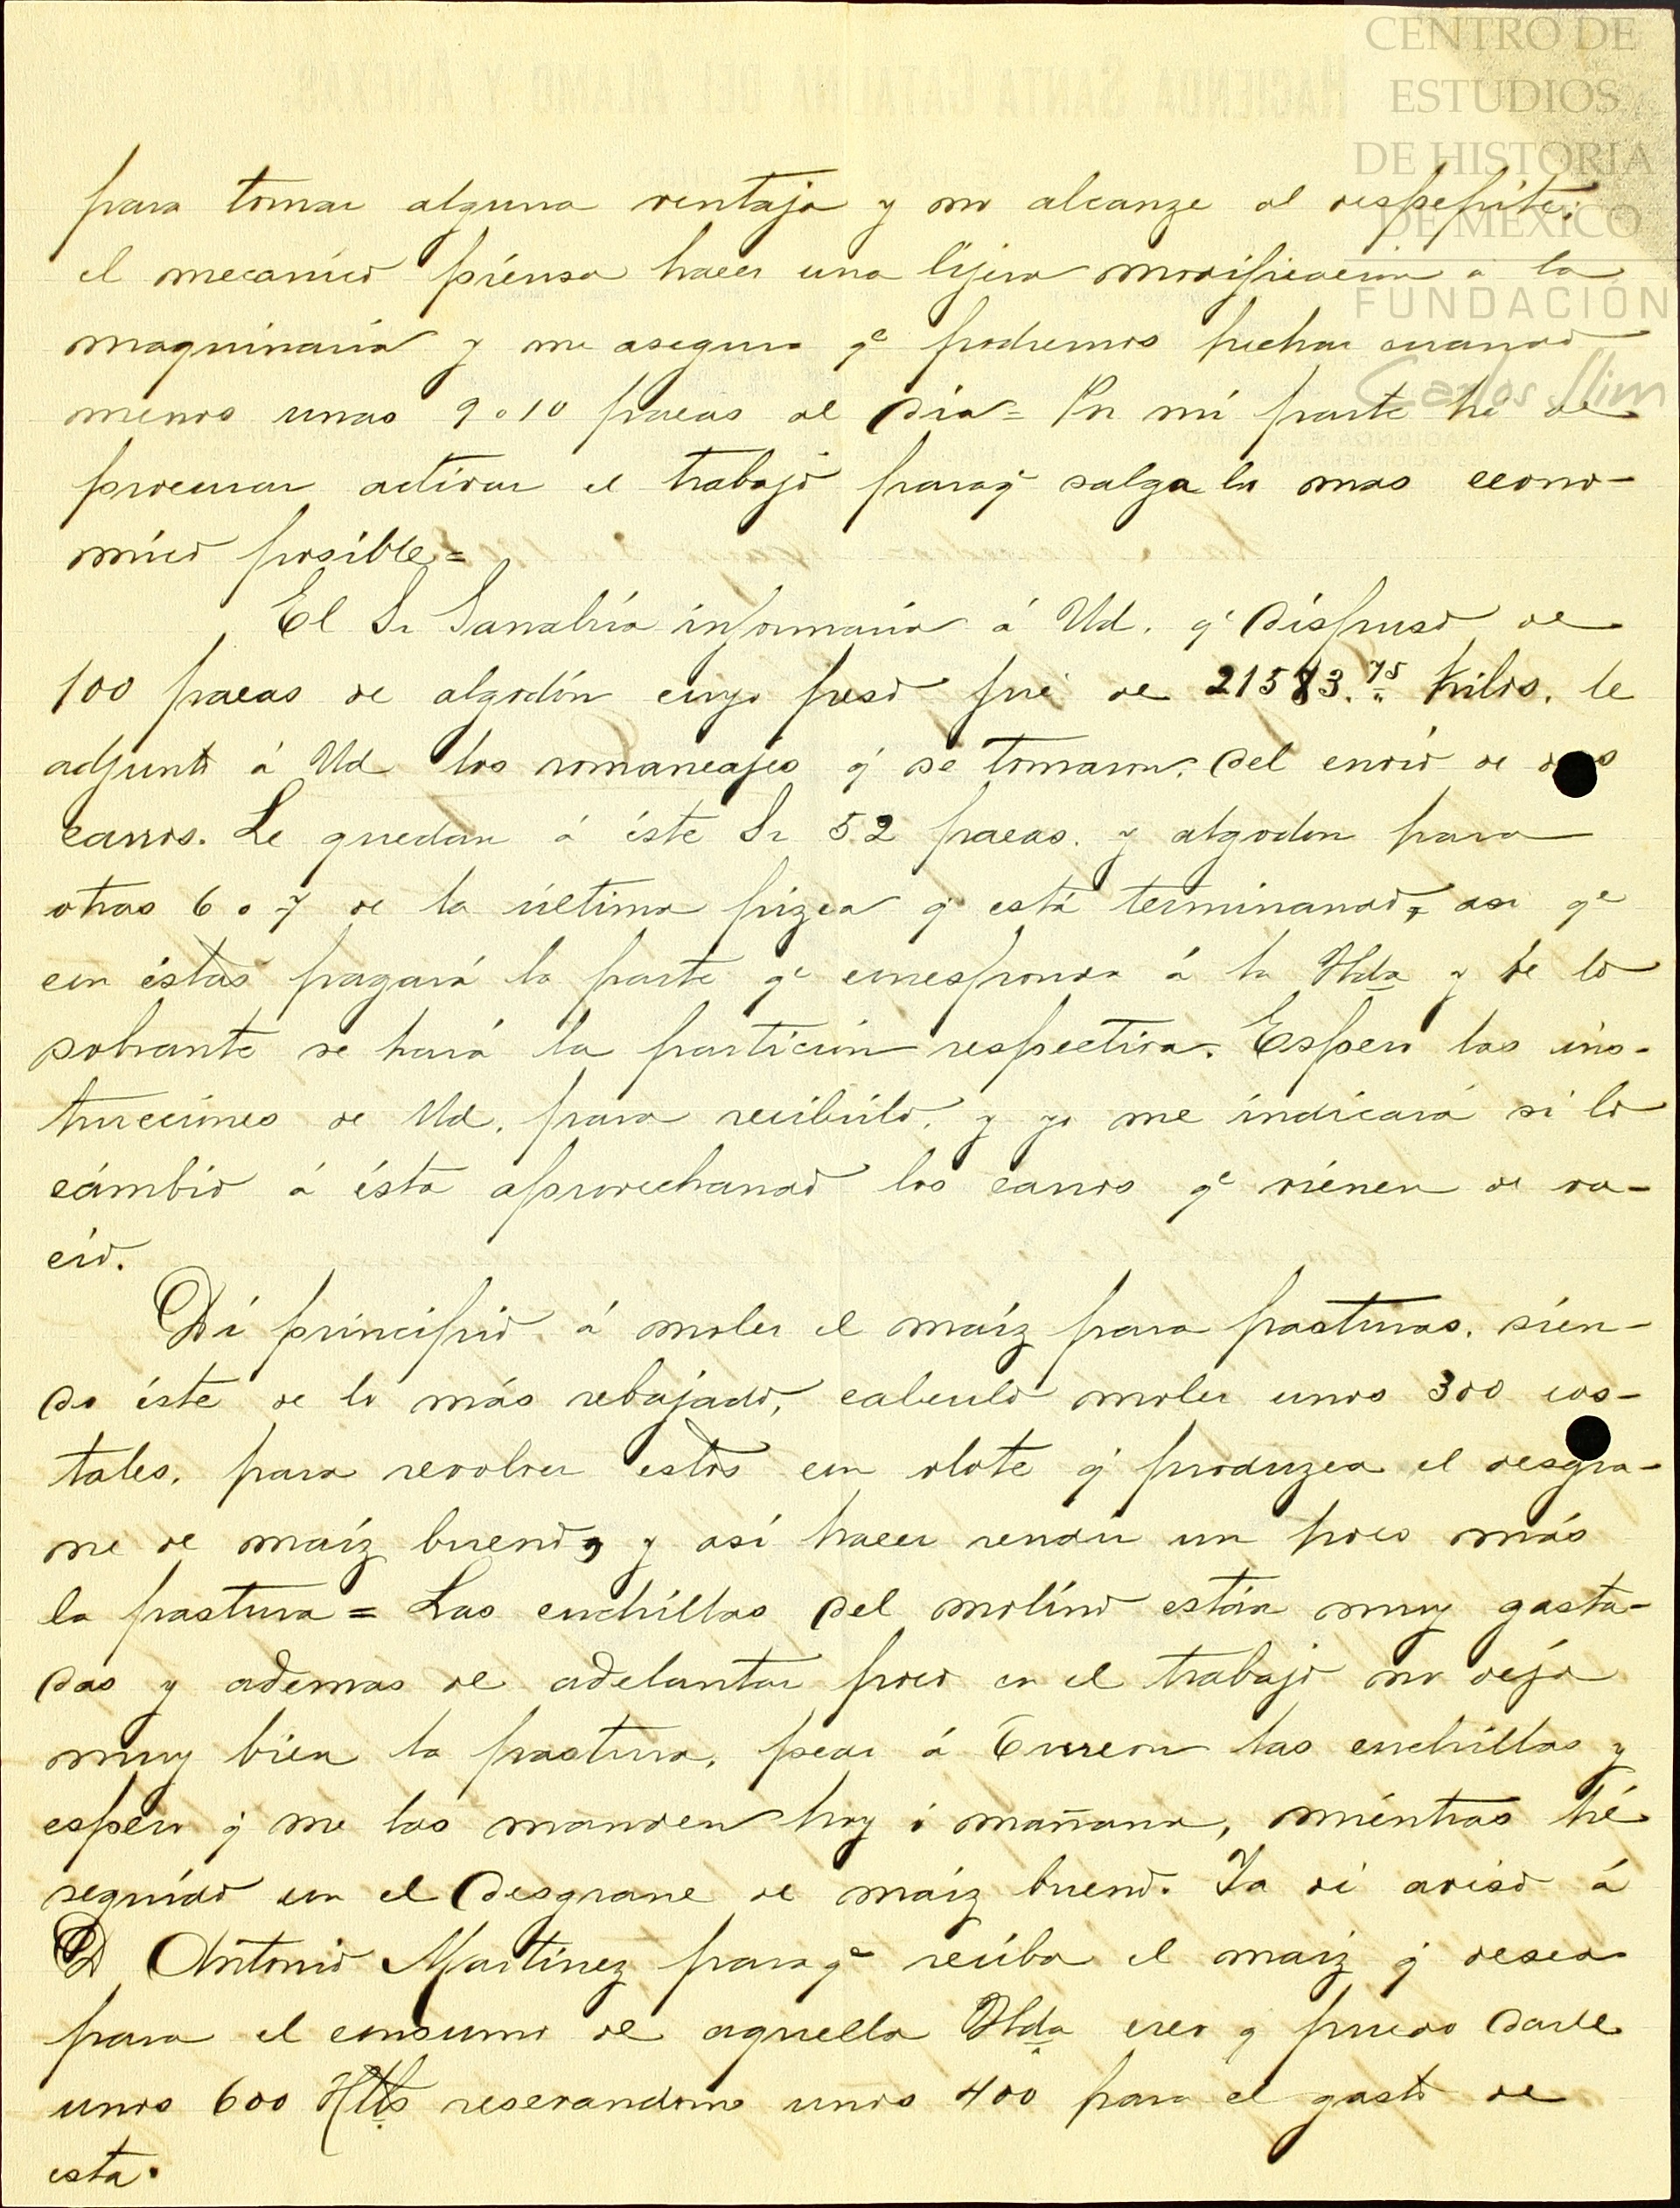 CENTRO DE
ESTUDIOS
DE HISTORIA
DE MÉXICO
FUNDACIÓN
Carlos Slim
HACIENDA SANTA CATALINA DEL ALAMO Y ANEXAS.
para tomar alguna ventaja y no alcanze al despepite;
el mecanico piensa hacer una lijera modificacion a la
maquinaria y me asegura qe podremos pechar cuando
menos unas 9 o 10 pacas al dia = Por mi parte hé de
procurar activar el trabajo paraqe salga lo mas econo-
mico posible =
El Sr Sanabria informaria á Ud. qe dispuso de
100 pacas de algodón cuyo peso fué de 21583.75 Kilos. le
adjunto á Ud los romaneajes q se tomaron. del envio de dos
carros. Le quedan á éste Sr 52 pacas. y algodon para
otras 6 o 7 de la última pizca qe está terminando, asi qe
con éstas pagará la parte qe corresponda á la Hda y de lo
sobrante se hará la partición respectiva. Espero las ins-
trucciones de Ud. para recibirlo. y ya me indicará si lo
cámbio á ésta aprovechando los carros qe vienen de va-
cio.
Dí principio á moler el maíz para pasturas. sien-
do éste de lo más rebajado, calculo moler unos 300 cos-
tales. para revolver estos con olote q produzca el desgra-
ne de maíz bueno, y así hacer rendir un poco más
la pastura = Las cuchillas del molino están muy gasta-
das y ademas de adelantar poco en el trabajo no deja
muy bien la pastura, pedi á Torreon las cuchillas y
espero q me las manden hoy ó mañana, miéntras hé
seguido con el desgrane de maíz bueno. Ya di aviso á
D Antonio Martínez paraqe reciba el maiz q desea
para el consumo de aquella Hda creo q puedo darle
unos 600 Htls reservandome unos 400 para el gasto de
esta.